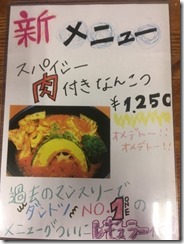 新メニュー
スパイシー
肉付きなんこつ
¥1250
オメデトー!!
オメデトー!!
過去のマンスリーで
ダントツNO.1の
メニューがついに